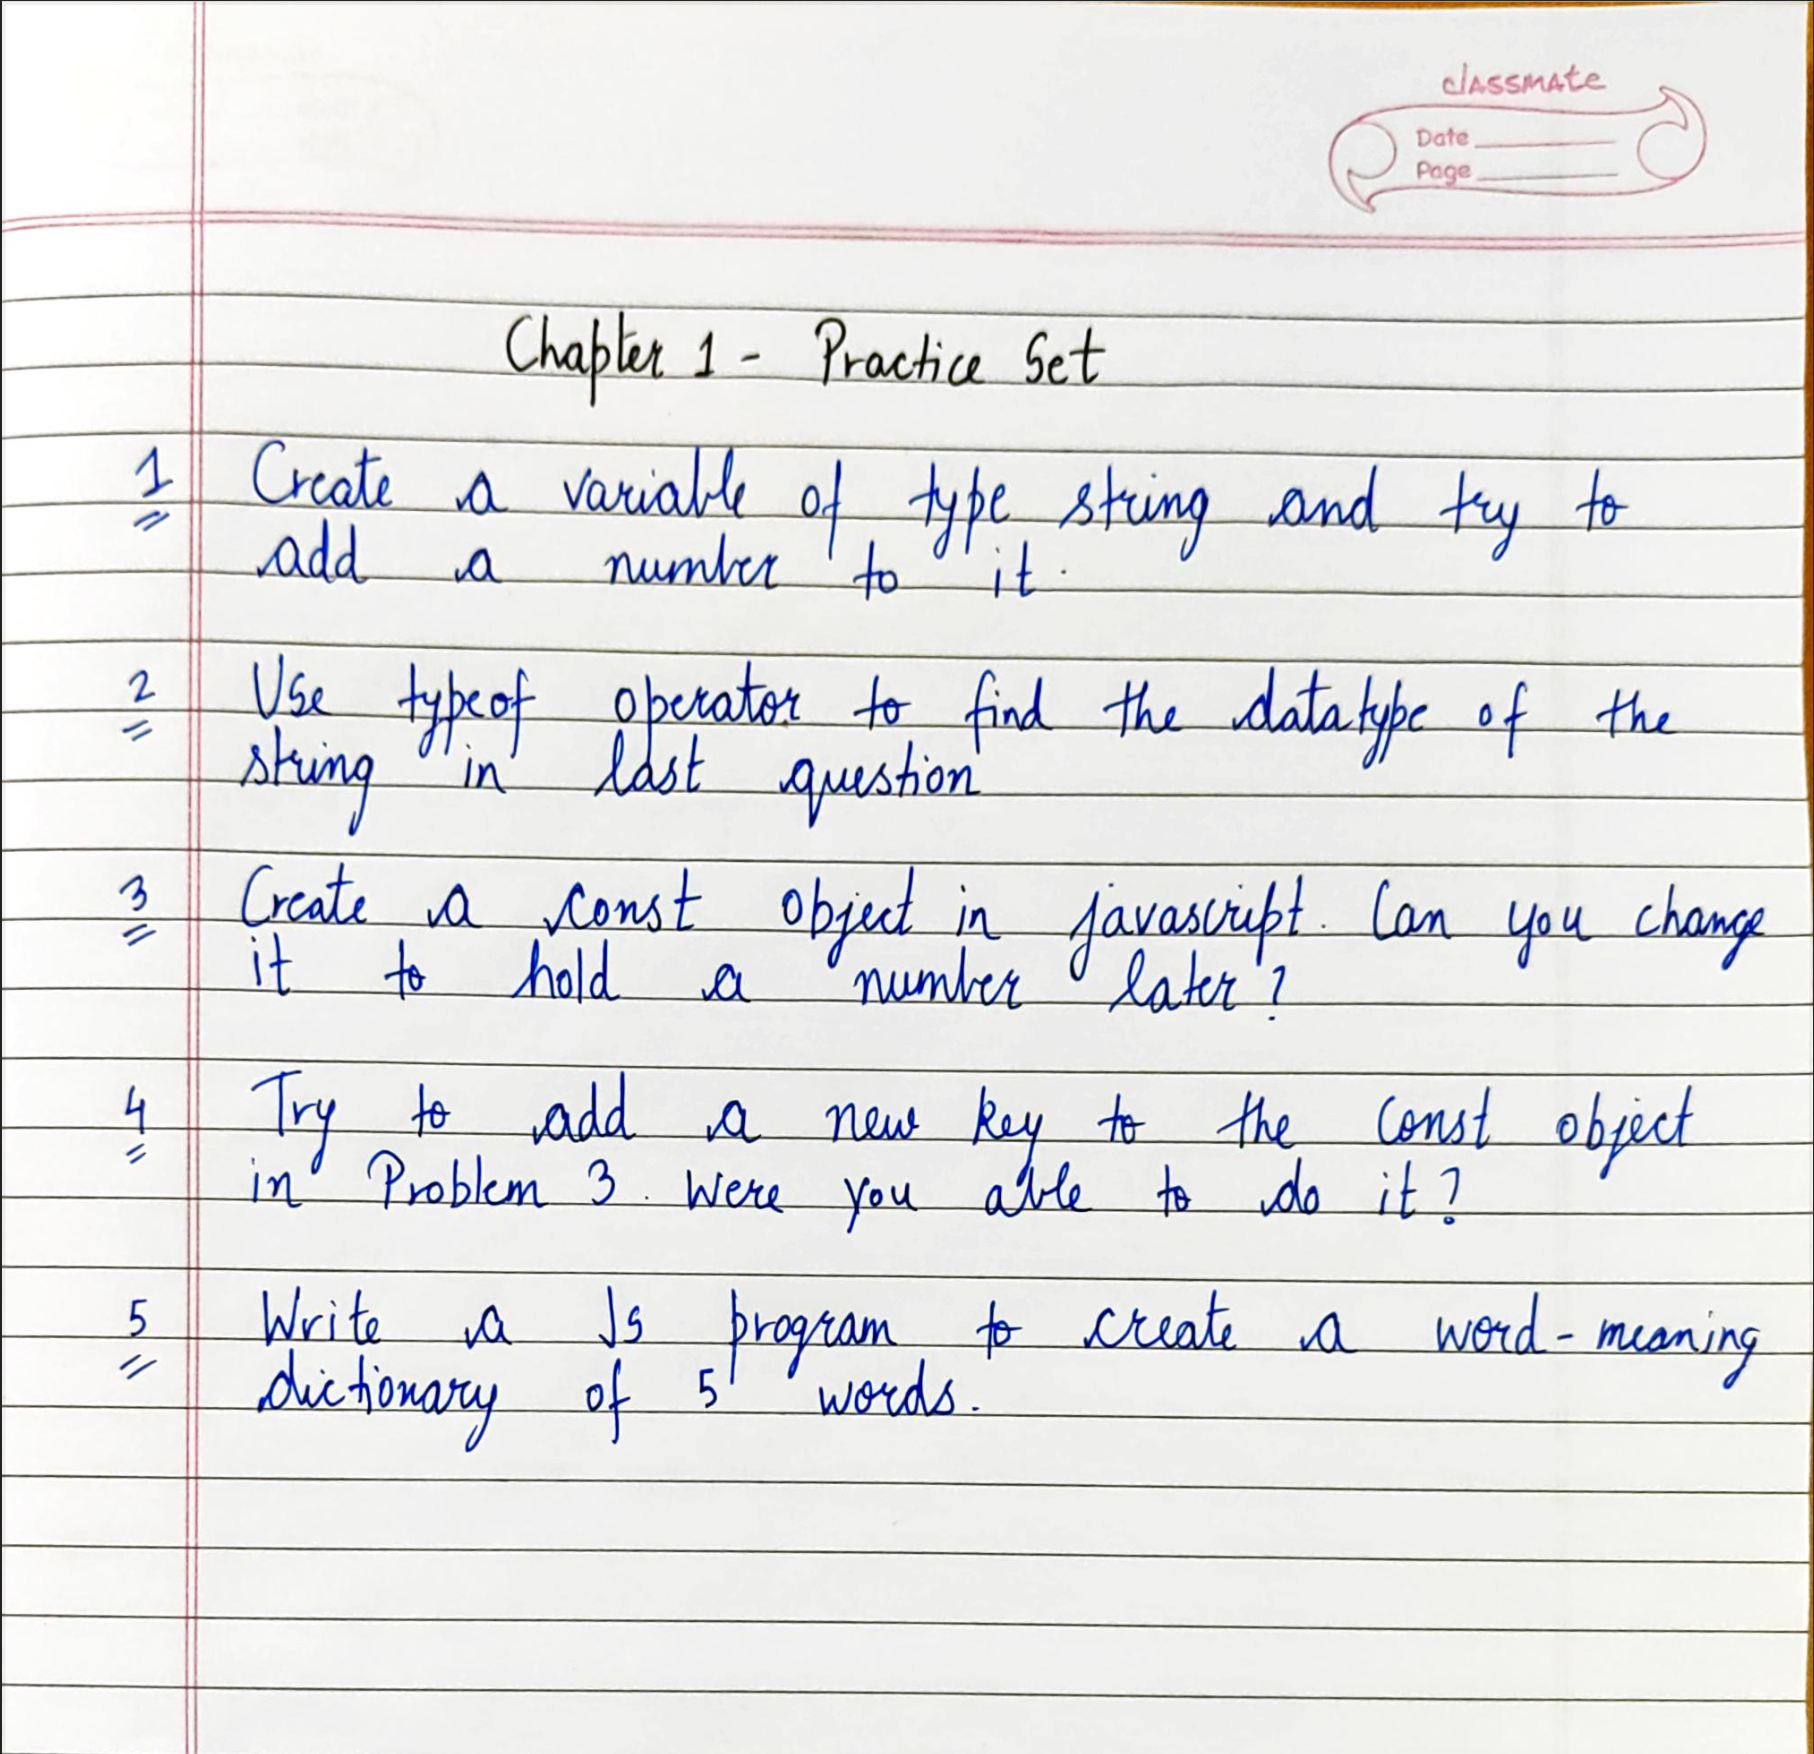 classmate
Date
Page
Chapter 1 - Practice Set
1 Create a variable of type string and try to
add a number to it.
2 Use typeof operator to find the datatype of the
string in last question
3 Create a const object in javascript. Can you change
it to hold a number later?
4 Try to add a new key to the const object
in Problem 3. Were you able to do it?
5 Write a Js program to create a word-meaning
dictionary of 5 words.